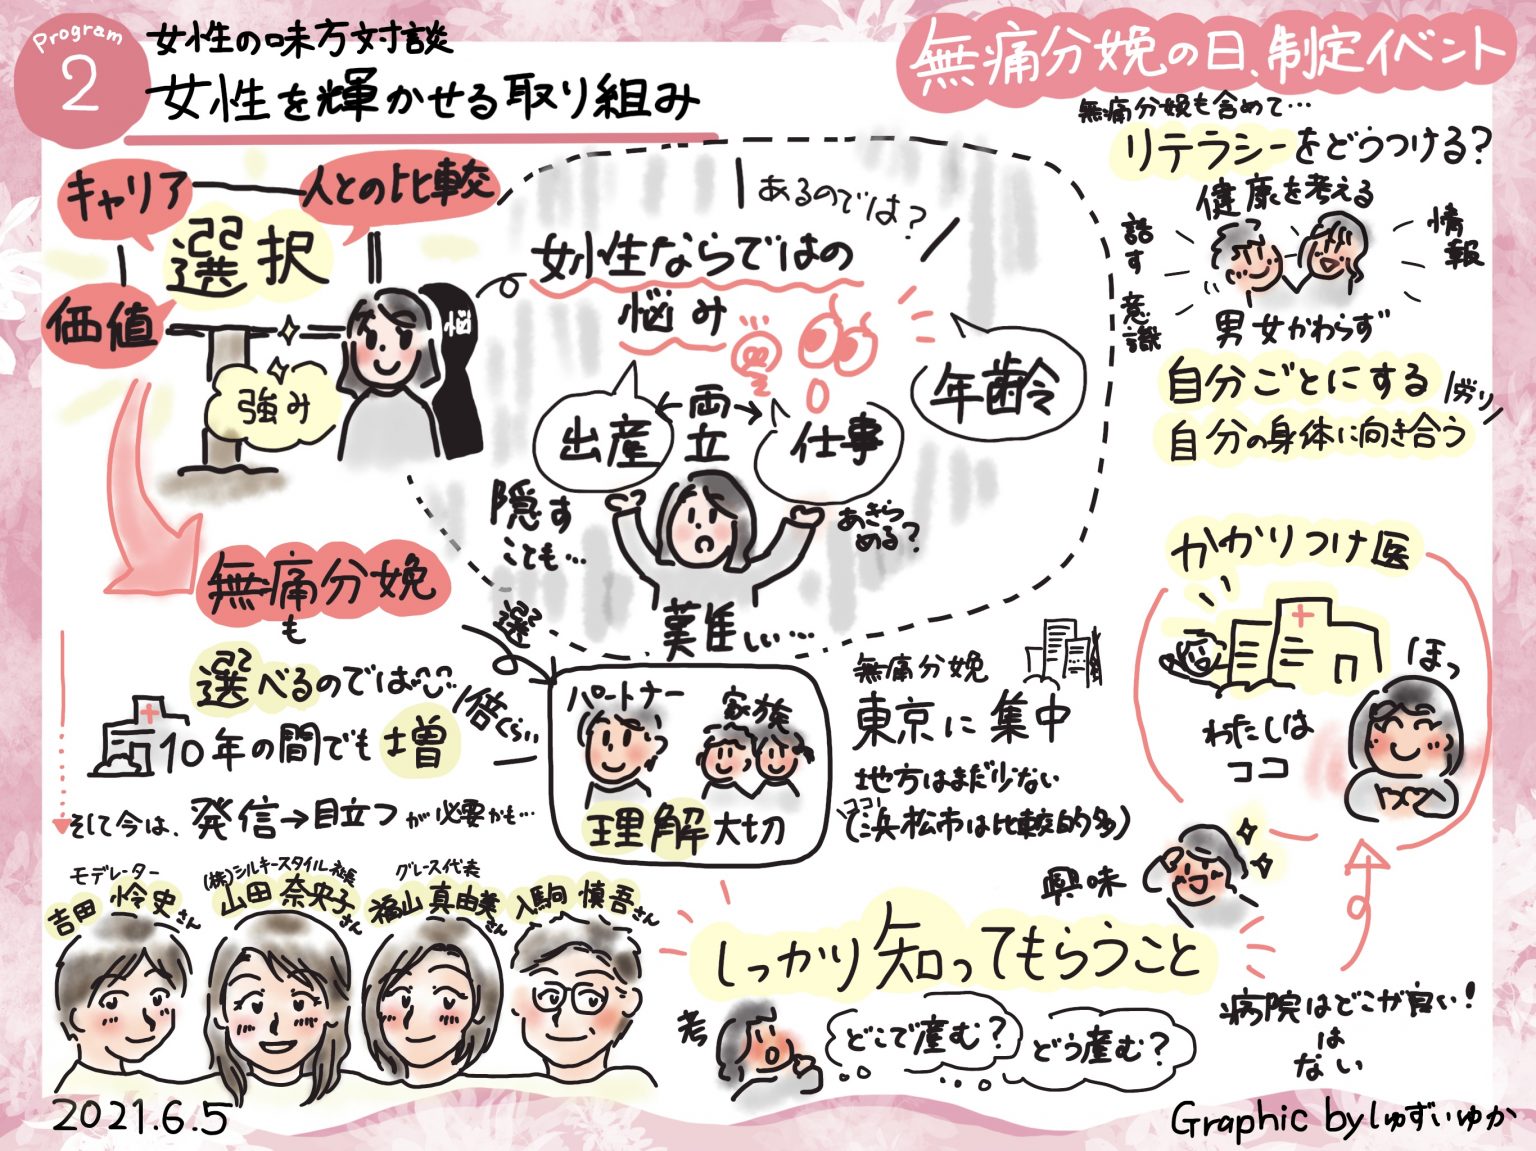 Program
2
女性の味方対談
女性を輝かせる取り組み
無痛分娩の日、制定イベント
キャリア
人との比較
選択
価値
強み
悩
あるのでは?
女性ならではの
悩み
出産
両立
仕事
年齢
隠す
ことも…
あきら
める?
難しい…
無痛分娩も含めて…
リテラシーをどうつける?
健康を考える
話す
情報
意識
男女かわらず
自分ごとにする
自分の身体に向き合う
無痛分娩
も
選べるのでは
10年の間でも増
1倍くらい
そして今は、発信→目立つが必要かも…
選
パートナー
家族
理解大切
無痛分娩
東京に集中
地方はまだ少ない
ココ!
(浜松市は比較的多)
かかりつけ医
ほっ
わたしは
ココ
興味
しっかり知ってもらうこと
考
どこで産む?
どう産む?
病院はどこが良い!
は
ない
モデレーター
吉田 怜史さん
(株)シルキースタイル社長
山田 奈央子さん
グレース代表
福山 真由美さん
入駒 慎吾さん
2021.6.5
Graphic by しゅずいゆか